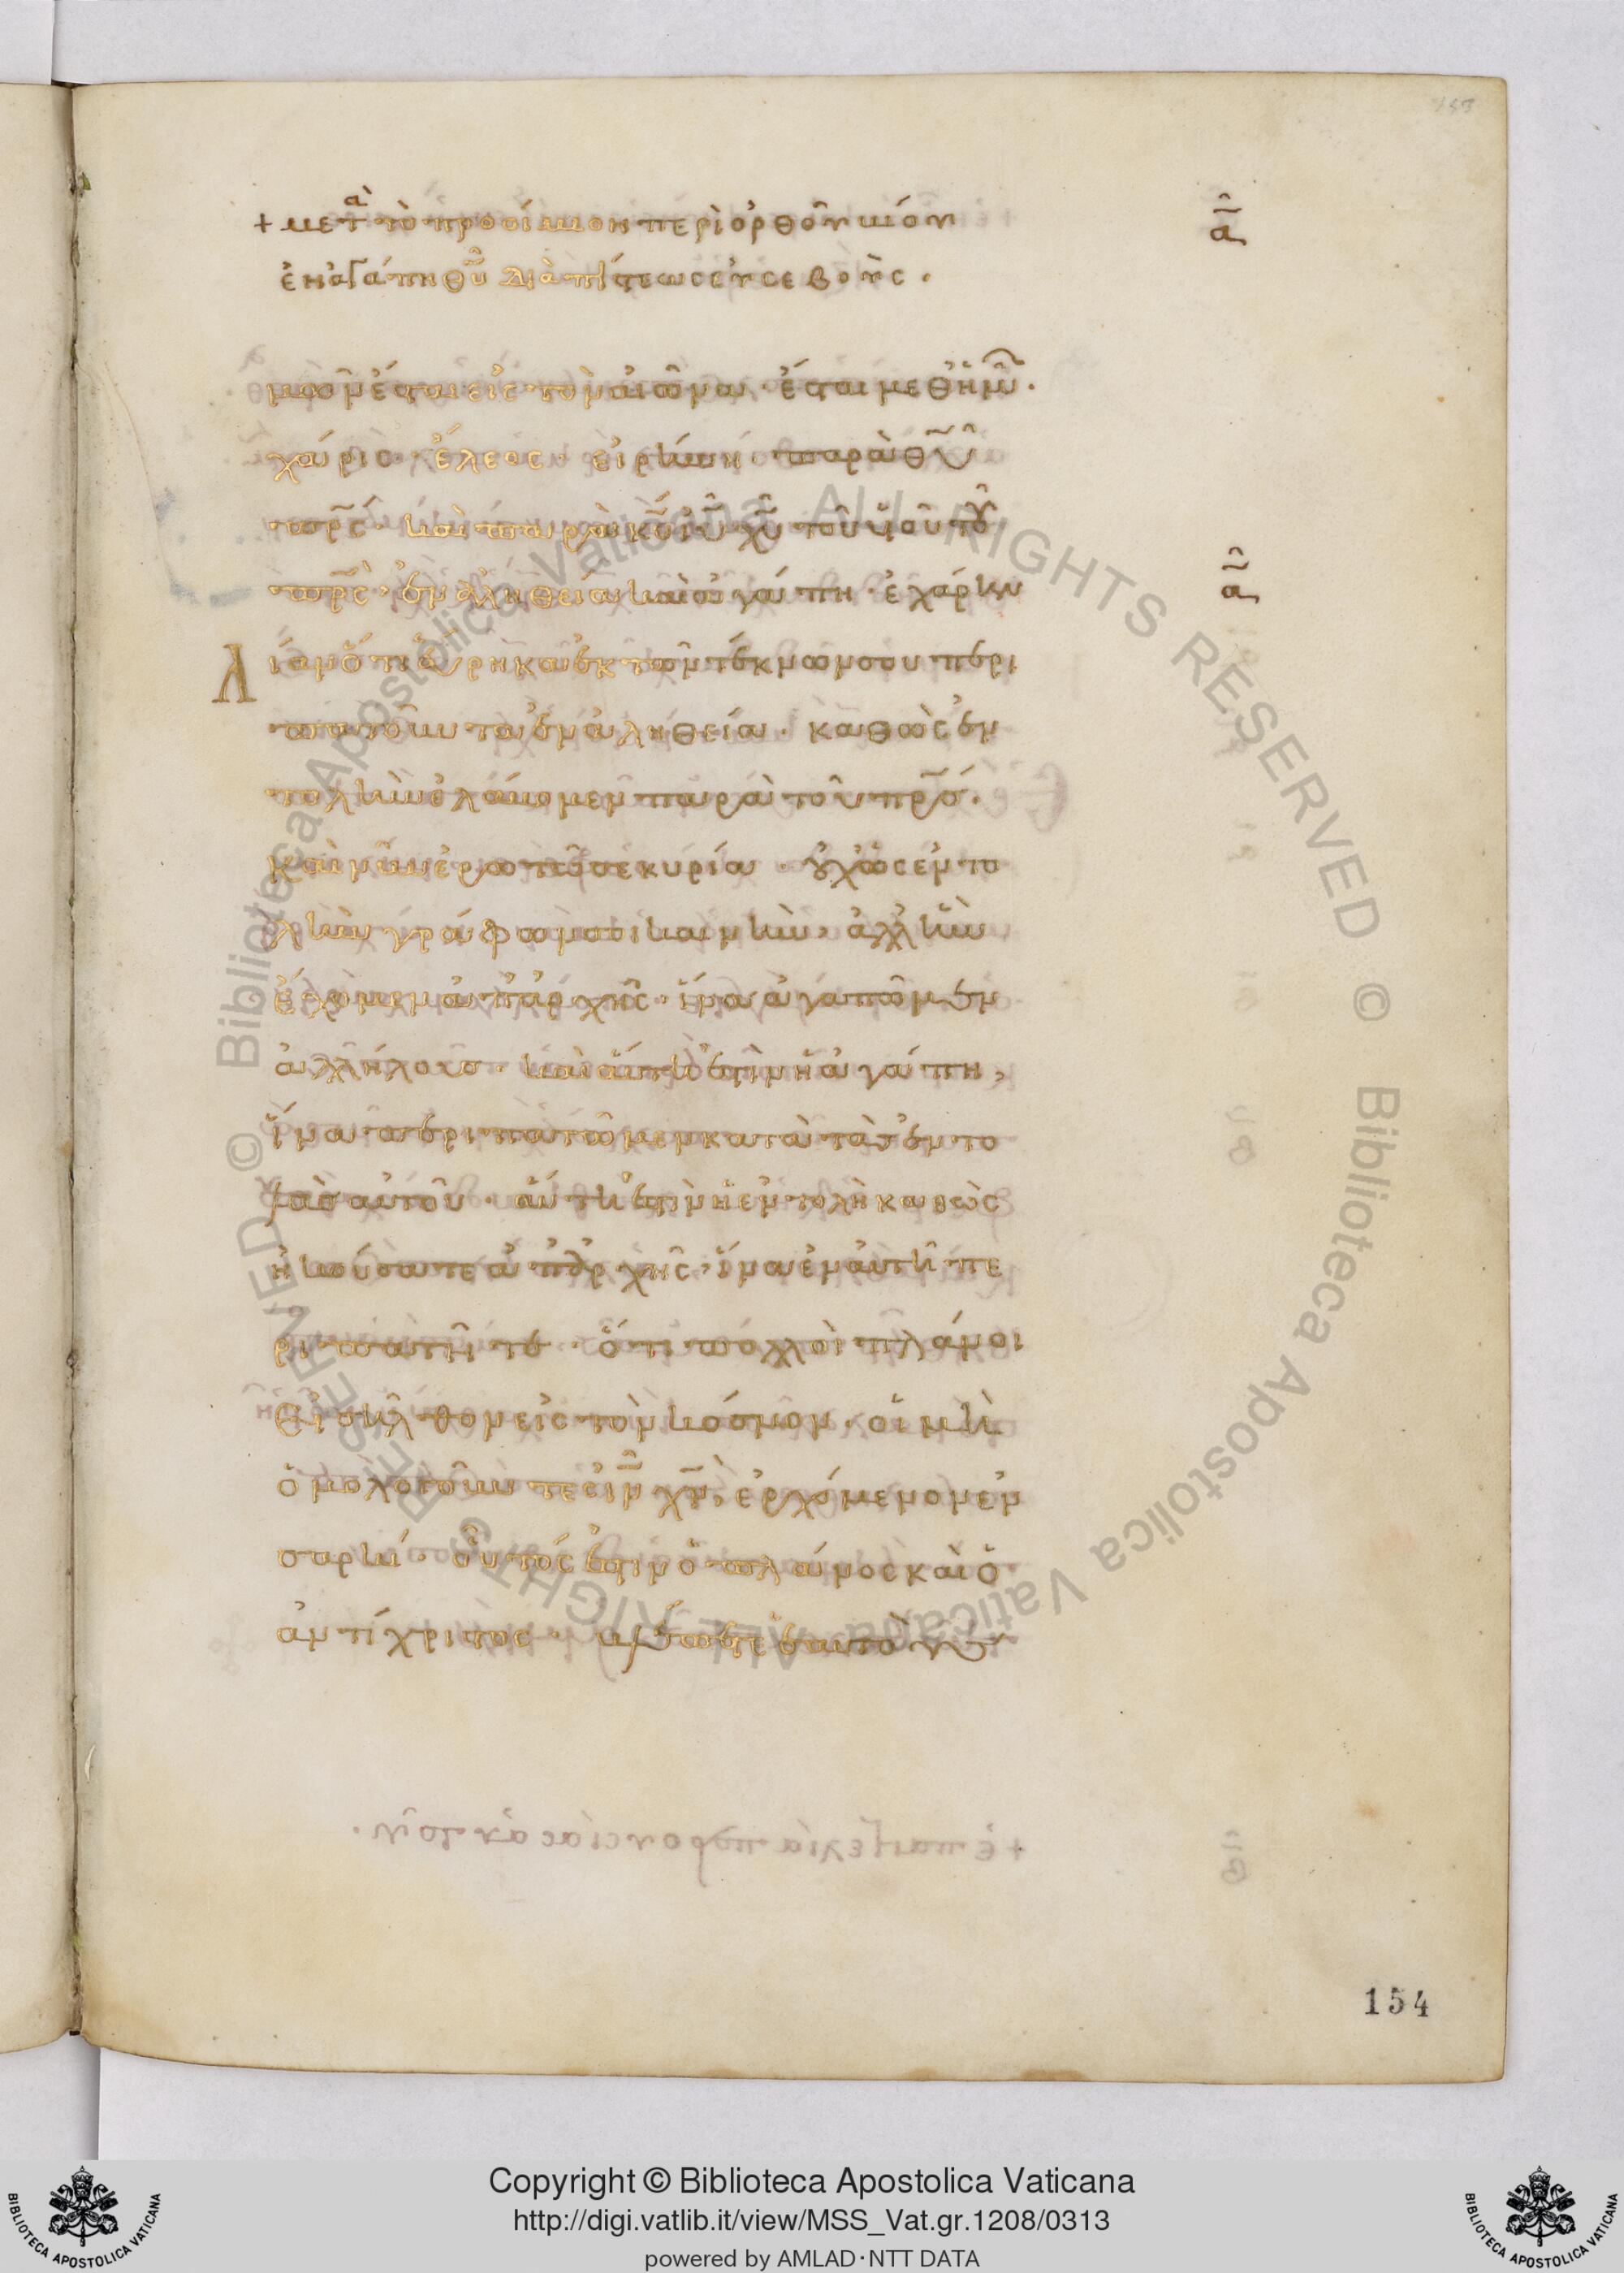 153
+ μετὰ τὸ προοίμιον περὶ ὀρθοῦ βίου
ἐν ἀγάπη θῦ διὰ πίστεως εὐσεβοῦς.
α
μῶν ἔσται εἰς τὸν αἰῶνα· ἔσται μεθ ἡμῶν·
χάρις· ἔλεος· εἰρήνη παρὰ θῦ
πρς· καὶ παρὰ κῦ ἰῦ χῦ τοῦ υἱοῦ τοῦ
πρς· ἐν ἀληθεία καὶ ἀγάπη· ἐχάρην
α
λίαν ὅτι εὕρηκα ἐκ τῶν τέκνων σου περι
πατοῦντας ἐν ἀληθεία· καθὼς ἐν
τολὴν ἐλάβομεν παρὰ τοῦ πρς·
καὶ νῦν ἐρωτῶ σε κυρία· οὐχ ὡς ἐντο
λὴν γράφων σοι καινὴν, ἀλλ ἣν
ἔχομεν ἀπ ἀρχῆς· ἵνα ἀγαπῶμεν
ἀλλήλους· καὶ αὕτη ἐστὶν ἡ ἀγάπη,
ἵνα περιπατῶμεν κατὰ τὰς ἐντο
λὰς αὐτοῦ· αὕτη ἐστὶν ἡ ἐντολὴ καθὼς
ἠκούσατε ἀπ ἀρχῆς· ἵνα ἐν αὐτῆ πε
ριπατῆτε· ὅτι πολλοὶ πλάνοι
εἰσῆλθον εἰς τὸν κόσμον· οἱ μὴ
ὁμολογοῦντες ἰν χν, ἐρχόμενον ἐν
σαρκί· οὗτός ἐστιν ὁ πλάνος καὶ ὁ
ἀντίχριστος· βλέπετε ἑαυτούς
154
Biblioteca Apostolica Vaticana ALL RIGHTS RESERVED © Biblioteca Apostolica Vaticana ALL RIGHTS RESERVED ©
Copyright © Biblioteca Apostolica Vaticana
http://digi.vatlib.it/view/MSS_Vat.gr.1208/0313
powered by AMLAD·NTT DATA
BIBLIOTECA APOSTOLICA VATICANA
BIBLIOTECA APOSTOLICA VATICANA